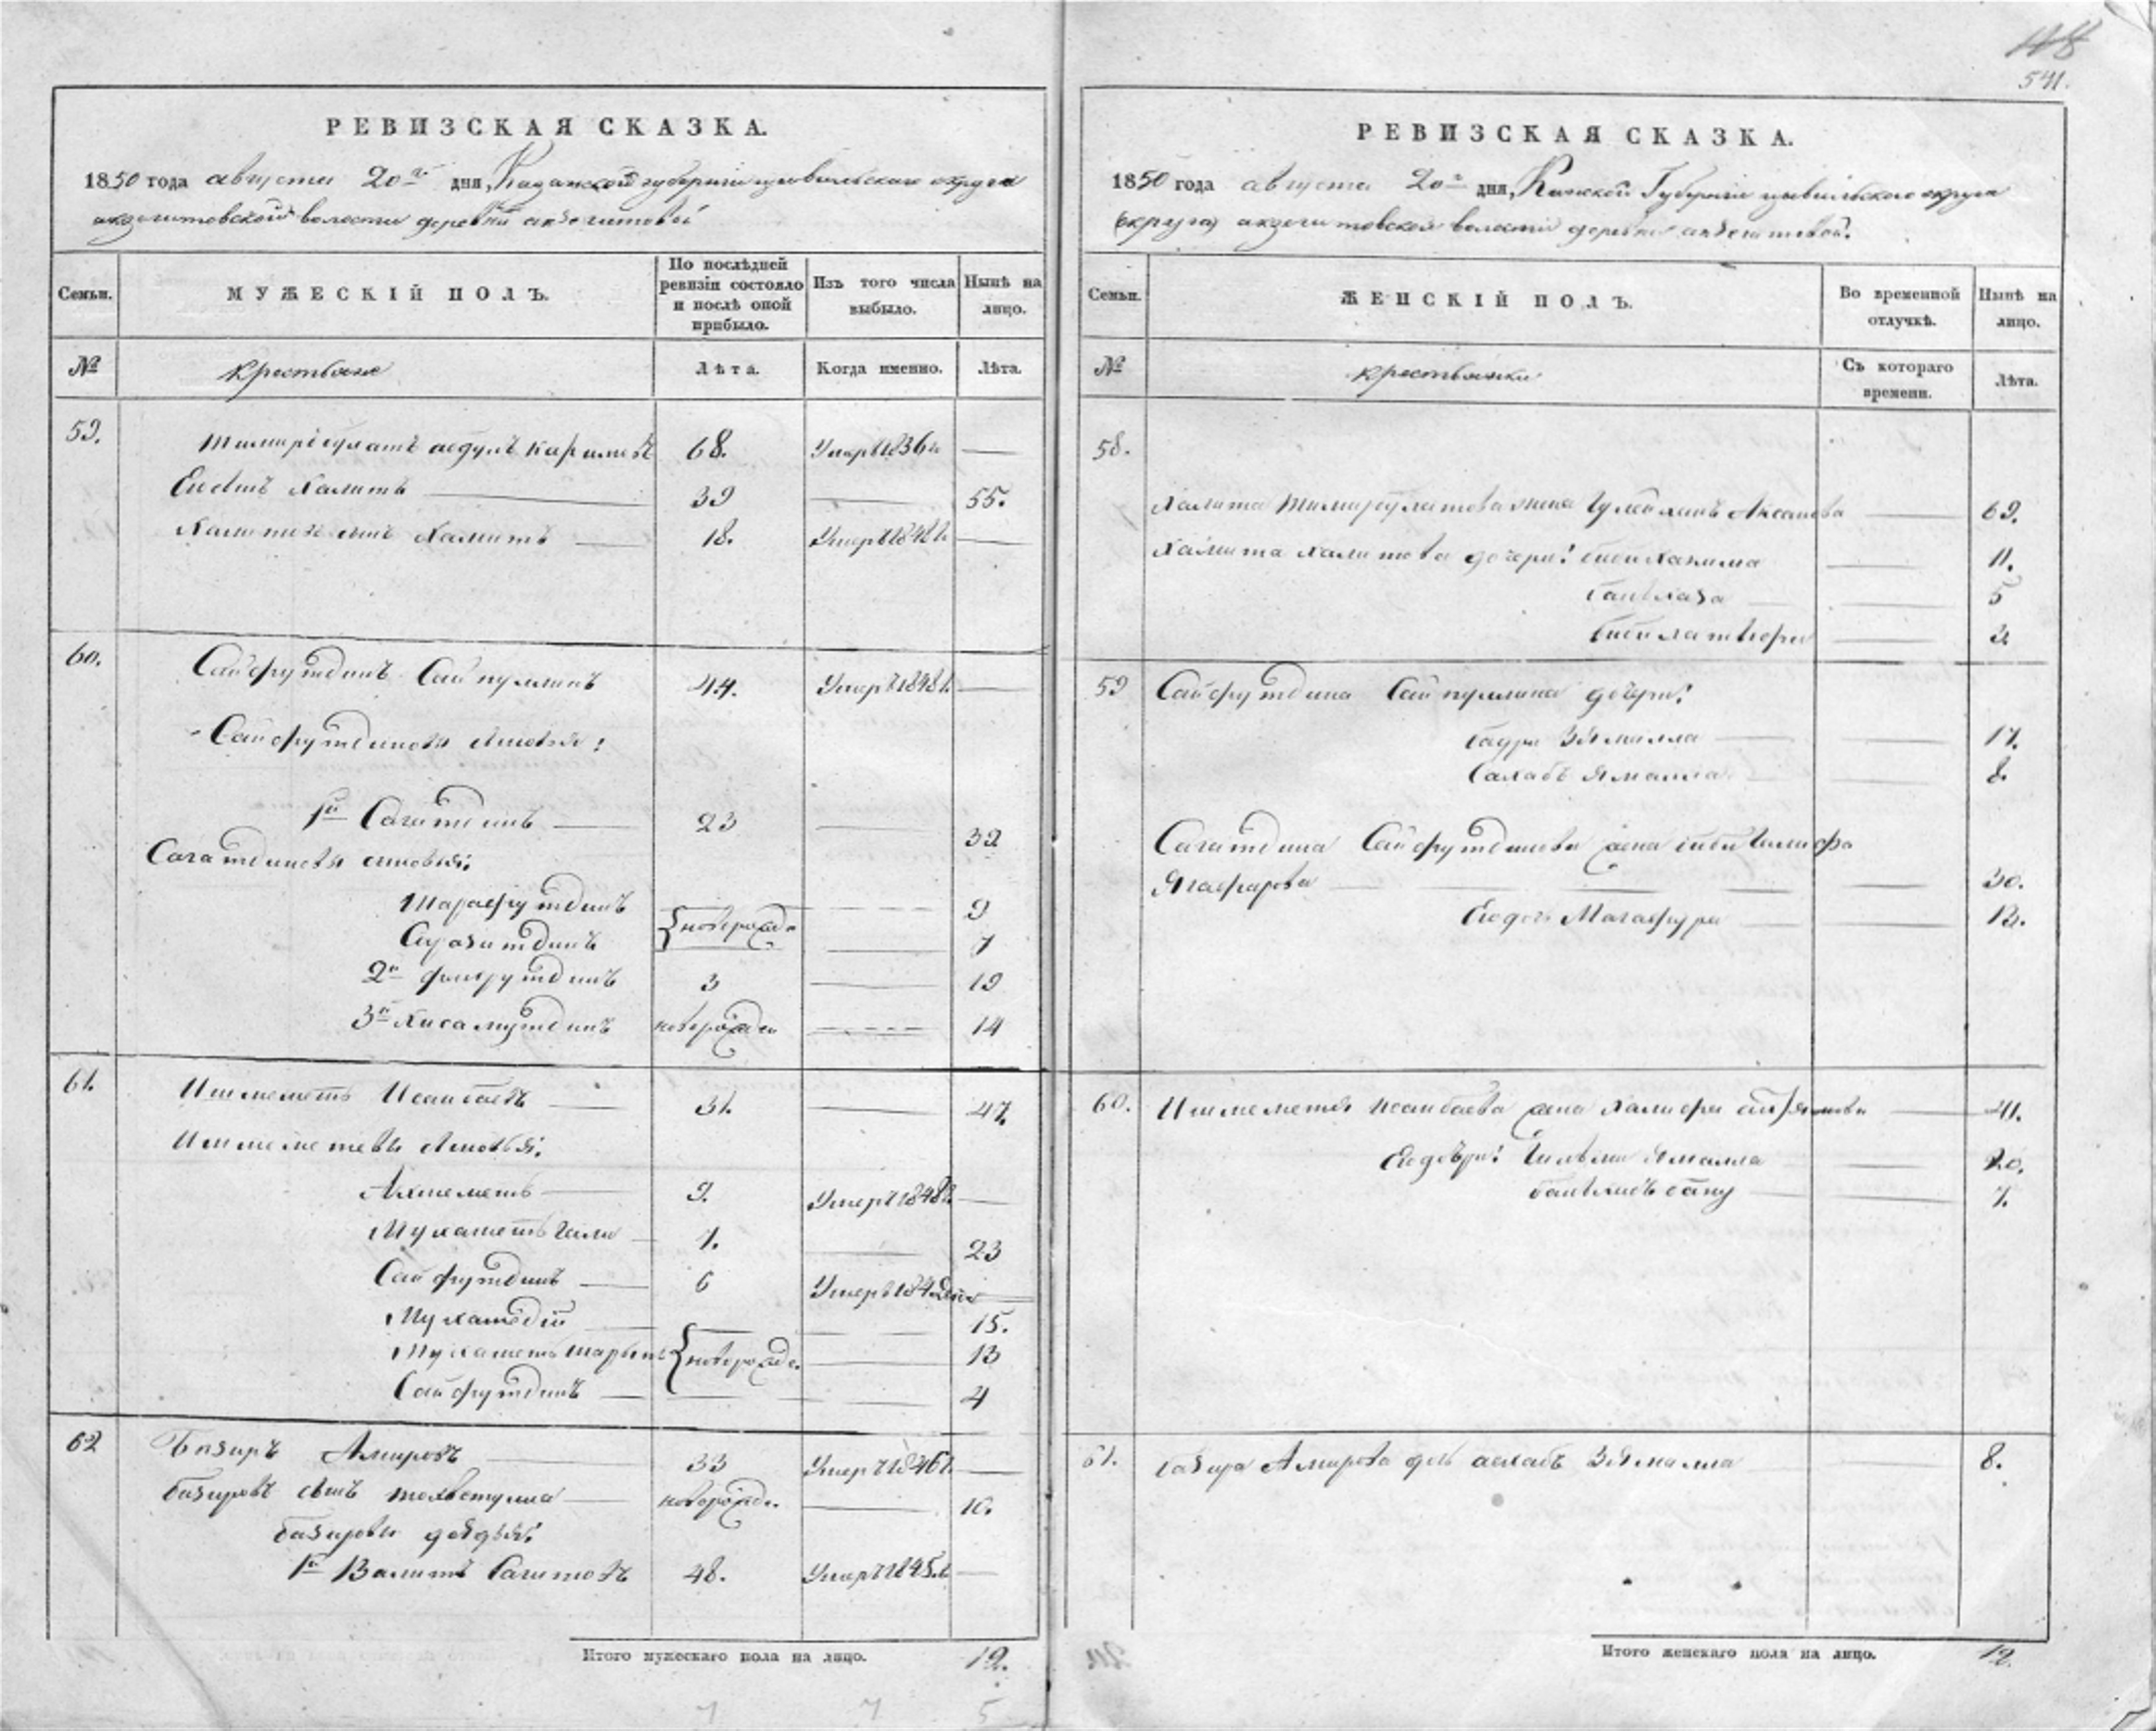 148
541.
РЕВИЗСКАЯ СКАЗКА.
1850 года августа 20го дня, Казанской губернии цывильскаго округа
акзегитовской волости деревни акзегитовой
Семьи.
МУЖЕСКІЙ ПОЛЪ.
По послѣдней ревизіи состояло и послѣ оной прибыло.
Изъ того числа выбыло.
Нынѣ на лицо.
№
крестьяне
Лѣта.
Когда именно.
Лѣта.
59.
Тимирбулатъ абдулъ каримовъ 68. Умеръ 1836 —
Его сынъ Халитъ 39 — 55.
Халитовъ сынъ Хамитъ 18. Умеръ 1848 —
60.
Сайфутдинъ Сайпуллинъ 44. Умеръ 1848 —
Сайфутдиновы сыновья:
1й Сагитдинъ — 23 — 32
Сагатдиновы сыновья:
Шарафутдинъ новорожде 9
Сиразитдинъ 7
2й Фахрутдинъ 3 — 19
3й Хисамутдинъ новорожден 14
61.
Ишмеметь Исанбаевъ — 31. — 47.
Ишмеметевы сыновья:
Ахмеметь — 9. Умеръ 1848 —
Мухаметь гали — 7. — 23
Сайфутдинъ — 6 Умеръ 1842
Мухамедій — 15.
Мухаметь шарыпъ новорожде. — 13
Сайфутдинъ — 4
62
Базиръ Амировъ — 33 Умеръ 1846 —
базировъ сынъ тохветулла — новорожде. — 10.
базировы дядья:
1й Валитъ Сагитовъ 48. Умеръ 1845 —
Итого мужескаго пола на лицо. 12.
РЕВИЗСКАЯ СКАЗКА.
1850 года августа 20го дня, Казанской Губерніи цывильскаго округа
(округа) акзегитовской волости деревни акзегитовой.
Семьи.
ЖЕНСКІЙ ПОЛЪ.
Во временной отлучкѣ.
Нынѣ на лицо.
№
крестьянки
Съ котораго времени.
Лѣта.
58.
Халита Тимирбулатова жена Гулбохинъ Аксанова — 69.
Хамита халитова дочери: биби Хакима — 11.
— 5
3
59 Сайфутдина Сайпуллина дочери:
бадри Зямалла — 17.
Сахабъ ямалла — 8.
Сагитдина Сайфутдинова жена биби Галифа
Ягафарова — 30.
Ея дочь Магафура — 12.
60. Ишмеметя исанбаева жена Халифа — 41.
Ея дочери: ямалла — 20.
бану — 7.
61. базира Амирова дочь асхабъ Зямалла — 8.
Итого женскаго пола на лицо. 12.